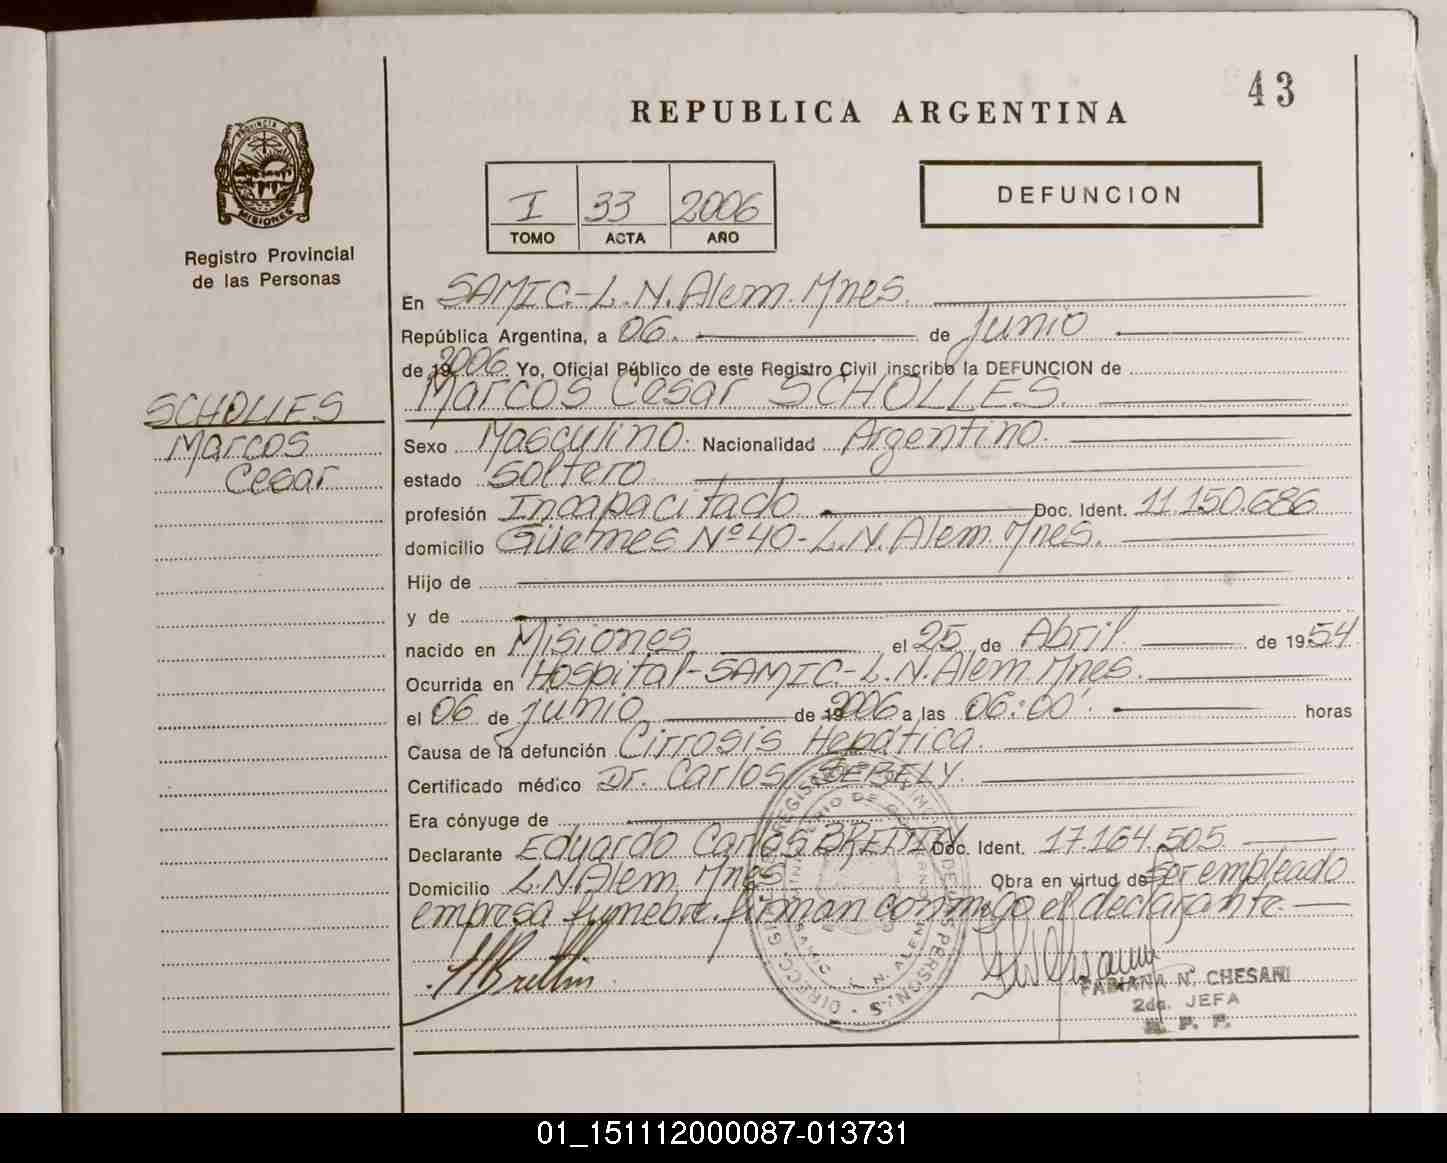 43
REPUBLICA ARGENTINA
PROVINCIA DE
MISIONES
Registro Provincial
de las Personas
I 33 2006
TOMO ACTA AÑO
DEFUNCION
En SAMIC.-L.N.Alem.Mnes.
República Argentina, a 06. de junio
de 19 2006. Yo, Oficial Público de este Registro Civil inscribo la DEFUNCION de
Marcos Cesar SCHOLLES.
SCHOLLES
Marcos
Cesar
Sexo Masculino. Nacionalidad Argentino.
estado Soltero
profesión Incapacitado Doc. Ident. 11.150.686
domicilio Güemes Nº40-L.N.Alem.Mnes.
Hijo de
y de
nacido en Misiones el 25 de Abril de 1954
Ocurrida en Hospital-SAMIC-L.N.Alem.Mnes.
el 06 de junio de 19 2006 a las 06:00' horas
Causa de la defunción Cirrosis Hepática.
Certificado médico Dr. Carlos SEBELY.
Era cónyuge de
Declarante Eduardo Carlos BRETTIN Doc. Ident. 17.164.505
Domicilio L.N.Alem. Mnes Obra en virtud de ser empleado
empresa fúnebre. firman conmigo el declarante
Brettin
FABIANA N. CHESANI
2da. JEFA
R. P. P.
01_151112000087-013731